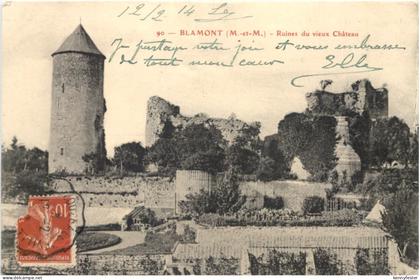 12/2/14
90 — BLAMONT (M.-et-M.) — Ruines du vieux Château
Je partage votre joie et vous embrasse
de tout mon cœur
Elle
10c
hennyfester